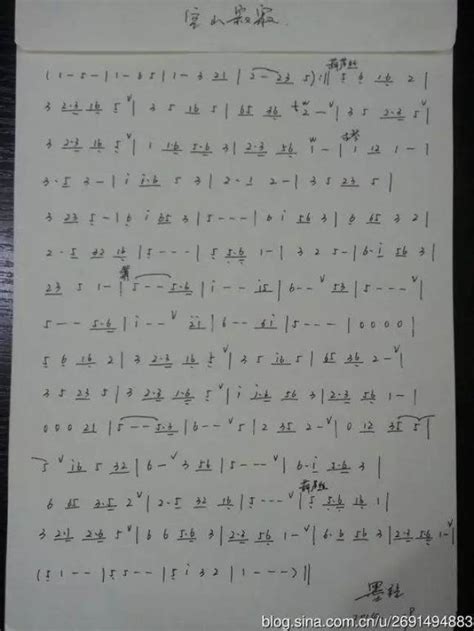 空山寂寂
(1 - 5 - | 1 - 3 5 | 1 - 3 21 | 2 - 23 5) :|| 葫芦丝 5 6 16 2 |
3 2·3 16 5 V | 3 5 16 5 | 65 36 2 - V | 3 5 2·3 5 V |
3 2·3 16 5 V | 1 1·6 5·6 3 | 2·3 56 1 - | 古琴 1 12 1 - |
3·5 3 - | i i·6 5 3 | 2·1 2 - | 3 5 23 5 |
3 23 5 - | 6 i 65 3 | 5 - - - | 6 i 56 3 | 6 65 3 2 |
2·5 32 16 | 5 - - - | 5 5·6 1 - | 3 2 5 - | 6·i 56 3 |
23 5 1 - | 箫 5 - - 5·6 | i - - i5 | 6 - - V 53 | 5 - - - V |
5 - - - 5·6 | i - - V 2i | 6 - - 6i | 5 - - - | 0 0 0 0 |
5 6 16 2 | 3 2·3 16 5 V | 3 5 i6 5 | 65 36 2 - V |
3 5 23 5 | 3 2·3 1·6 5 V | i i·6 56 3 | 2·3 56 1 - |
0 0 0 21 | 5 - - 5·3 | 6 - - V 5 | 2 35 2 - V | 0 12 35 5 |
5 V i6 5 32 | 6 - V 3 56 | 5 - - - V | 6·i 3·6 3 |
6 65 3·5 2 V | 2·5 32 16 | 5 - - - V | 葫芦丝 5 5·6 16 1 |
3 2·1 2·6 5 V | 6 6 5·6 3 | 2·3 56 1 - V | 6·6 56 3 | 2·3 56 1 - V |
(5 1 - - | 5 5 - - | 5 i 3 2 | 1 - - -) ||
blog.sina.com.cn/u/2691494883